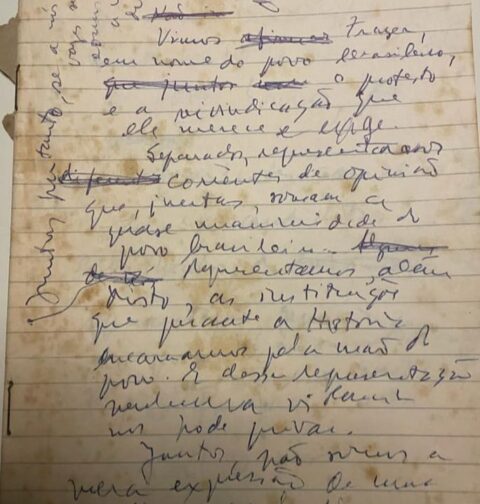 Vimos trazer,
em nome do povo brasileiro,
o protesto
e a reivindicação que
ele merece e exige.
Separados, representamos
correntes de opinião
que, juntas, somam a
quase unanimidade do
povo brasileiro.
Representamos, além
disto, as instituições
que perante a História
encarnamos pela mão do
povo. E dessa representação
nenhuma violência
nos pode privar.
Juntos, não somos a
mera expressão de uma
Juntos, portanto, se a nós